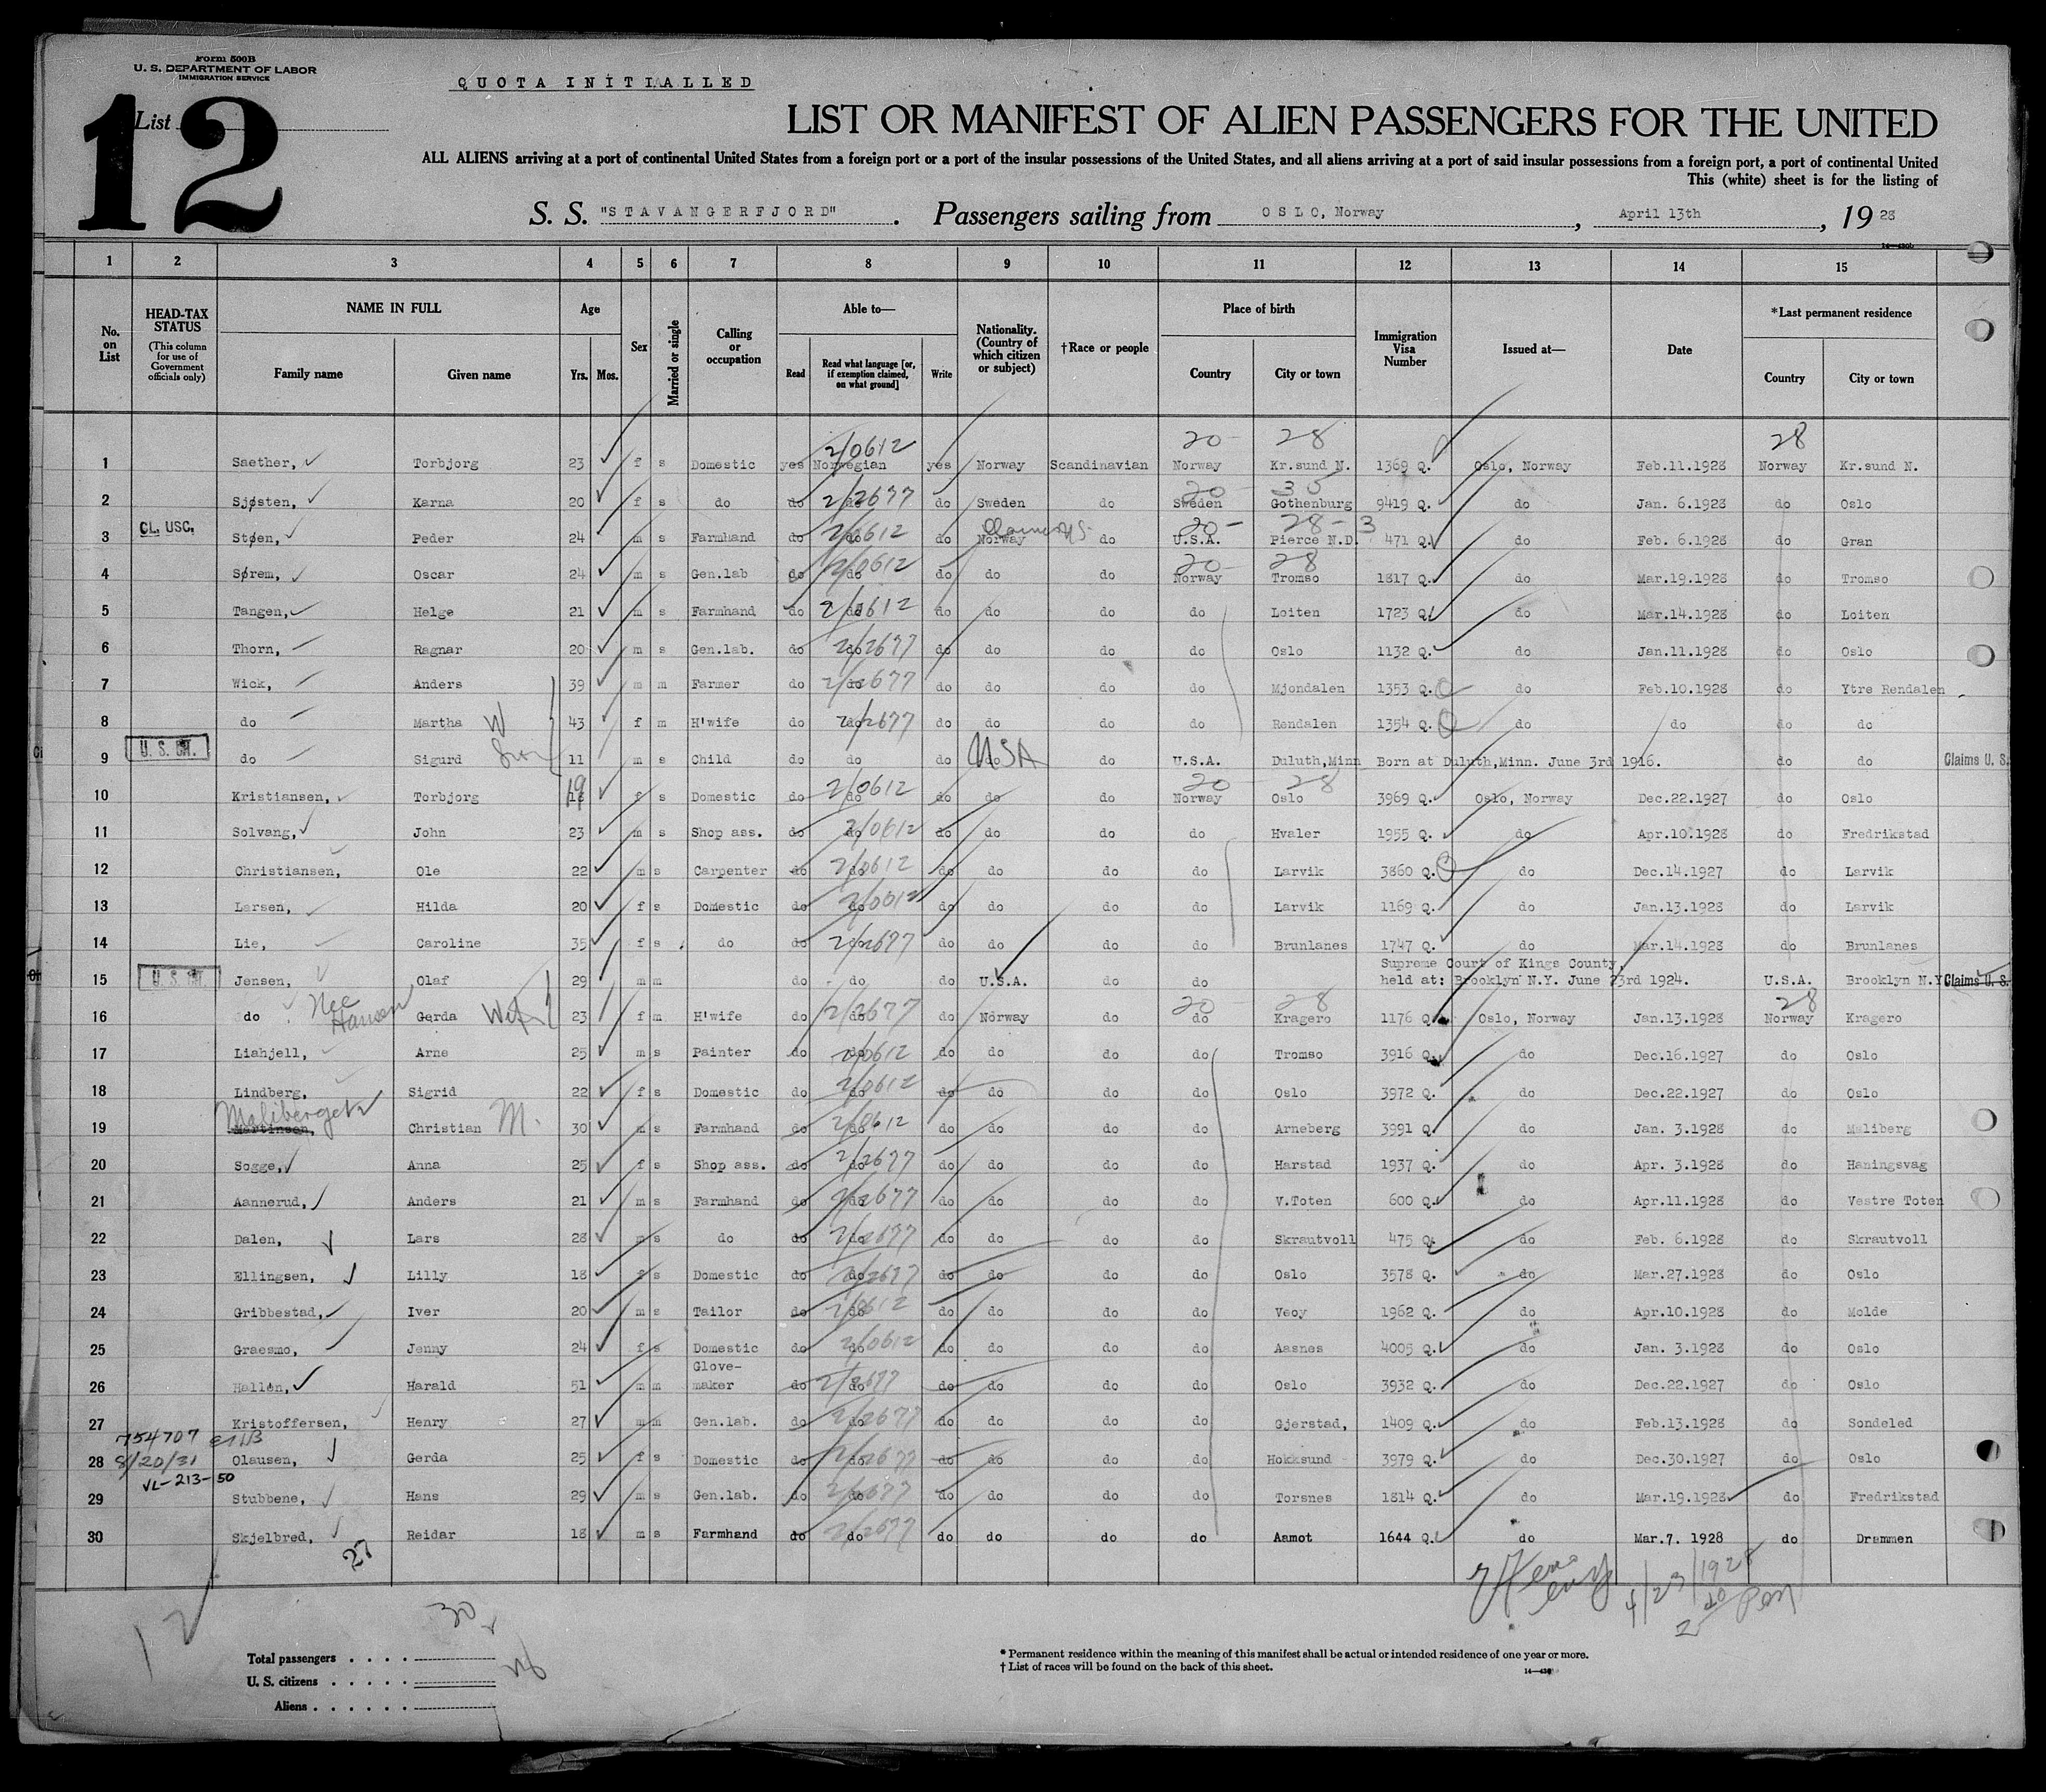 Form 500B
U. S. DEPARTMENT OF LABOR
IMMIGRATION SERVICE
QUOTA INITIALLED
List 12
LIST OR MANIFEST OF ALIEN PASSENGERS FOR THE UNITED
ALL ALIENS arriving at a port of continental United States from a foreign port or a port of the insular possessions of the United States, and all aliens arriving at a port of said insular possessions from a foreign port, a port of continental United
This (white) sheet is for the listing of
S. S. "STAVANGERFJORD". Passengers sailing from OSLO, Norway, April 13th, 1928
14—430b
1 2 3 4 5 6 7 8 9 10 11 12 13 14 15
No. on List
HEAD-TAX STATUS
(This column for use of Government officials only)
NAME IN FULL
Family name Given name
Age
Yrs. Mos.
Sex
Married or single
Calling or occupation
Able to—
Read Read what language [or, if exemption claimed, on what ground] Write
Nationality. (Country of which citizen or subject)
†Race or people
Place of birth
Country City or town
Immigration Visa Number
Issued at—
Date
*Last permanent residence
Country City or town
2/0612 20 - 28 28
1 Saether, Torbjorg 23 f s Domestic yes Norwegian yes Norway Scandinavian Norway Kr.sund N. 1369 Q. Oslo, Norway Feb.11.1928 Norway Kr.sund N.
2/2677 20 - 35
2 Sjøsten, Karna 20 f s do do do do Sweden do Sweden Gothenburg 9419 Q. do Jan. 6.1928 do Oslo
CL. USC. 2/0612 20 - 28 - 3
3 Støen, Peder 24 m s Farmhand do do do Norway do U.S.A. Pierce N.D. 471 Q. do Feb. 6.1928 do Gran
2/0612 20 - 28
4 Sørem, Oscar 24 m s Gen.lab do do do do do Norway Tromso 1817 Q. do Mar.19.1928 do Tromso
5 Tangen, Helge 21 m s Farmhand do do 2/0612 do do do do Loiten 1723 Q. do Mar.14.1928 do Loiten
6 Thorn, Ragnar 20 m s Gen.lab. do do 2/2677 do do do do Oslo 1132 Q. do Jan.11.1928 do Oslo
7 Wick, Anders 39 m m Farmer do do 2/2677 do do do do Mjondalen 1353 Q. do Feb.10.1928 do Ytre Rendalen
8 do Martha W 43 f m H'wife do do 2/2677 do do do do Rendalen 1354 Q. do do do do
9 do Sigurd Son 11 m s Child do do do do USA do U.S.A. Duluth,Minn Born at Duluth,Minn. June 3rd 1916. do do Claims U. S.
2/0612 20 - 28
10 Kristiansen, Torbjorg 19 f s Domestic do do do do do Norway Oslo 3969 Q. Oslo, Norway Dec.22.1927 do Oslo
11 Solvang, John 23 m s Shop ass. do do 2/0612 do do do do Hvaler 1955 Q. do Apr.10.1928 do Fredrikstad
12 Christiansen, Ole 22 m s Carpenter do do 2/0612 do do do do Larvik 3860 Q. do Dec.14.1927 do Larvik
13 Larsen, Hilda 20 f s Domestic do do 2/0612 do do do do Larvik 1169 Q. do Jan.13.1928 do Larvik
14 Lie, Caroline 35 f s do do do 2/2677 do do do do Brunlanes 1747 Q. do Mar.14.1928 do Brunlanes
Supreme Court of Kings County,
15 Jensen, Olaf 29 m m do do do U.S.A. do do held at: Brooklyn N.Y. June 23rd 1924. U.S.A. Brooklyn N.Y. Claims U. S.
Nee Hansen 20 - 28 28
16 do Gerda Wife 23 f m H'wife do do 2/2677 do Norway do do Kragero 1176 Q. Oslo, Norway Jan.13.1928 Norway Kragero
17 Liahjell, Arne 25 m s Painter do do 2/0612 do do do do Tromso 3916 Q. do Dec.16.1927 do Oslo
18 Lindberg, Sigrid 22 f s Domestic do do 2/0612 do do do do Oslo 3972 Q. do Dec.22.1927 do Oslo
19 Martinsen, Christian M. 30 m s Farmhand do do 2/0612 do do do do Arneberg 3991 Q. do Jan. 3.1928 do Maliberg
20 Sogge, Anna 25 f s Shop ass. do do 2/2677 do do do do Harstad 1937 Q. do Apr. 3.1928 do Haningsvag
21 Aannerud, Anders 21 m s Farmhand do do 2/2677 do do do do V.Toten 600 Q. do Apr.11.1928 do Vestre Toten
22 Dalen, Lars 28 m s do do do 2/2677 do do do do Skrautvoll 475 Q. do Feb. 6.1928 do Skrautvoll
23 Ellingsen, Lilly 18 f s Domestic do do 2/2677 do do do do Oslo 3578 Q. do Mar.27.1928 do Oslo
24 Gribbestad, Iver 20 m s Tailor do do 2/0612 do do do do Veoy 1962 Q. do Apr.10.1928 do Molde
25 Graesmo, Jenny 24 f s Domestic do do 2/0612 do do do do Aasnes 4005 Q. do Jan. 3.1928 do Oslo
Glove-
26 Hallén, Harald 51 m m maker do do 2/2677 do do do do Oslo 3932 Q. do Dec.22.1927 do Oslo
27 Kristoffersen, Henry 27 m m Gen.lab. do do 2/2677 do do do do Gjerstad, 1409 Q. do Feb.13.1928 do Sondeled
754707
28 8/20/31 Olausen, Gerda 25 f s Domestic do do 2/2677 do do do do Hokksund 3979 Q. do Dec.30.1927 do Oslo
VL-213-50
29 Stubbene, Hans 29 m s Gen.lab. do do 2/2677 do do do do Torsnes 1814 Q. do Mar.19.1928 do Fredrikstad
30 Skjelbred, Reidar 18 m s Farmhand do do 2/2677 do do do do Aamot 1644 Q. do Mar.7. 1928 do Drammen
27
4/23/1928
12
30
Total passengers
U. S. citizens
Aliens
* Permanent residence within the meaning of this manifest shall be actual or intended residence of one year or more.
† List of races will be found on the back of this sheet.